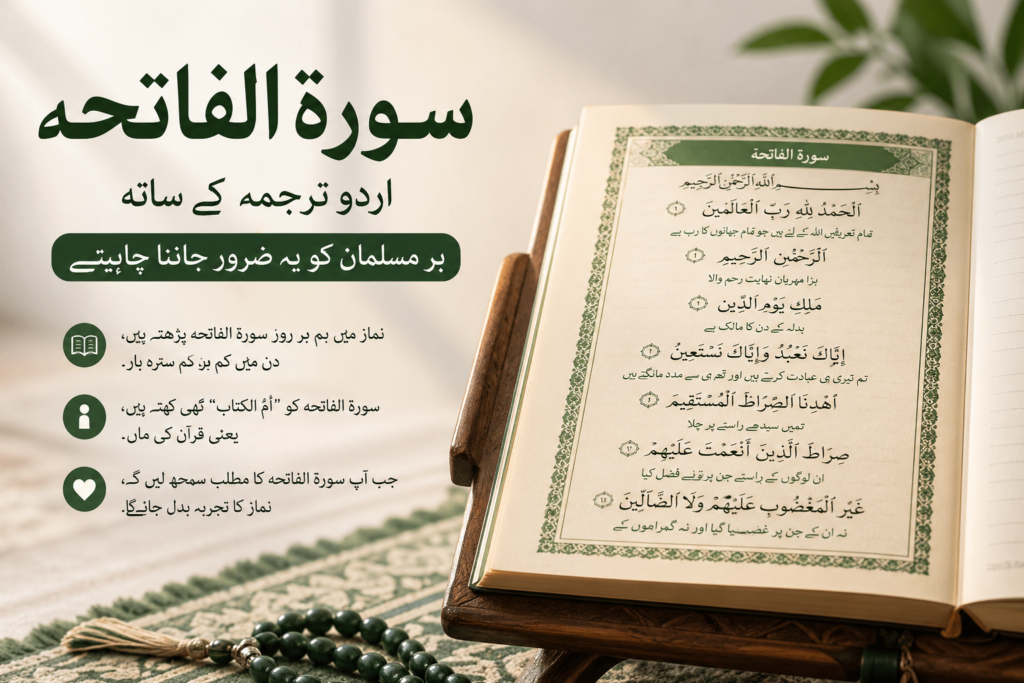 سورة الفاتحہ
اردو ترجمہ کے ساتھ
ہر مسلمان کو یہ ضرور جاننا چاہیئے
نماز میں ہم ہر روز سورة الفاتحہ پڑھتے ہیں،
دن میں کم بڑ کم سترہ بار۔
سورة الفاتحہ کو "أمُّ الکتاب" گھی کھتے ہیں،
یعنی قرآن کی ماں۔
جب آپ سورة الفاتحہ کا مطلب سمحھ لیں گے،
نماز کا تجربہ بدل جائےگا۔
سورة الفاتحة
بِسْمِ اللَّهِ الرَّحْمَٰنِ الرَّحِيمِ
اَلْحَمْدُ لِلّٰهِ رَبِّ الْعَالَمْيِنَ
تمام تعریفیں اللہ کے لئے ہیں جو تمام جهانوں کا رب ہے
اَلرَّحْمٰنِ الرَّحِيمِ
بڑا مهربان نهایت رحم والا
مَلِكِ يَوْمِ الدِّينِ
بدلہ کے دن کا مالک ہے
إِيَّاكَ نَعْبُدُ وَإِيَّاكَ نَسْتَعِينُ
تم تیری ہی عبادت کرتے ہیں اور تجھ ہی سے مدد مانگتے ہیں
اَهْدِنَا الصِّرَاطَ الْمُسْتَقِيمَ
تمیں سیدھے راستے پر چلا
صِرَاطَ الَّذِينَ أَنْعَمْتَ عَلَيْهِمْ
ان لوگوں کے راستے جن پر تونے فضل کیا
غَيْرِ الْمَغْضُوبِ عَلَيْهِمْ وَلَا الضَّالِّينَ
نہ ان کے جن پر غضب کیا گیا اور نہ گمراموں کے